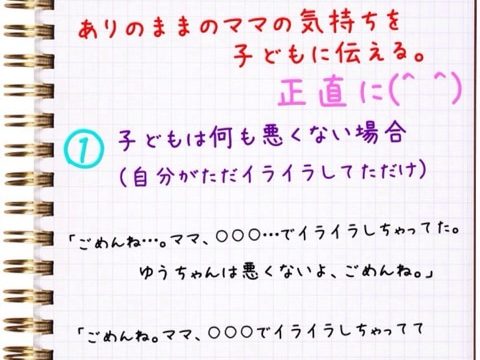 ありのままのママの気持ちを
子どもに伝える。
正直に(^ ^)
① 子どもは何も悪くない場合
(自分がただイライラしてただけ)
「ごめんね…。ママ、○○○…でイライラしちゃってた。
ゆうちゃんは悪くないよ、ごめんね。」
「ごめんね。ママ、○○○でイライラしちゃってて